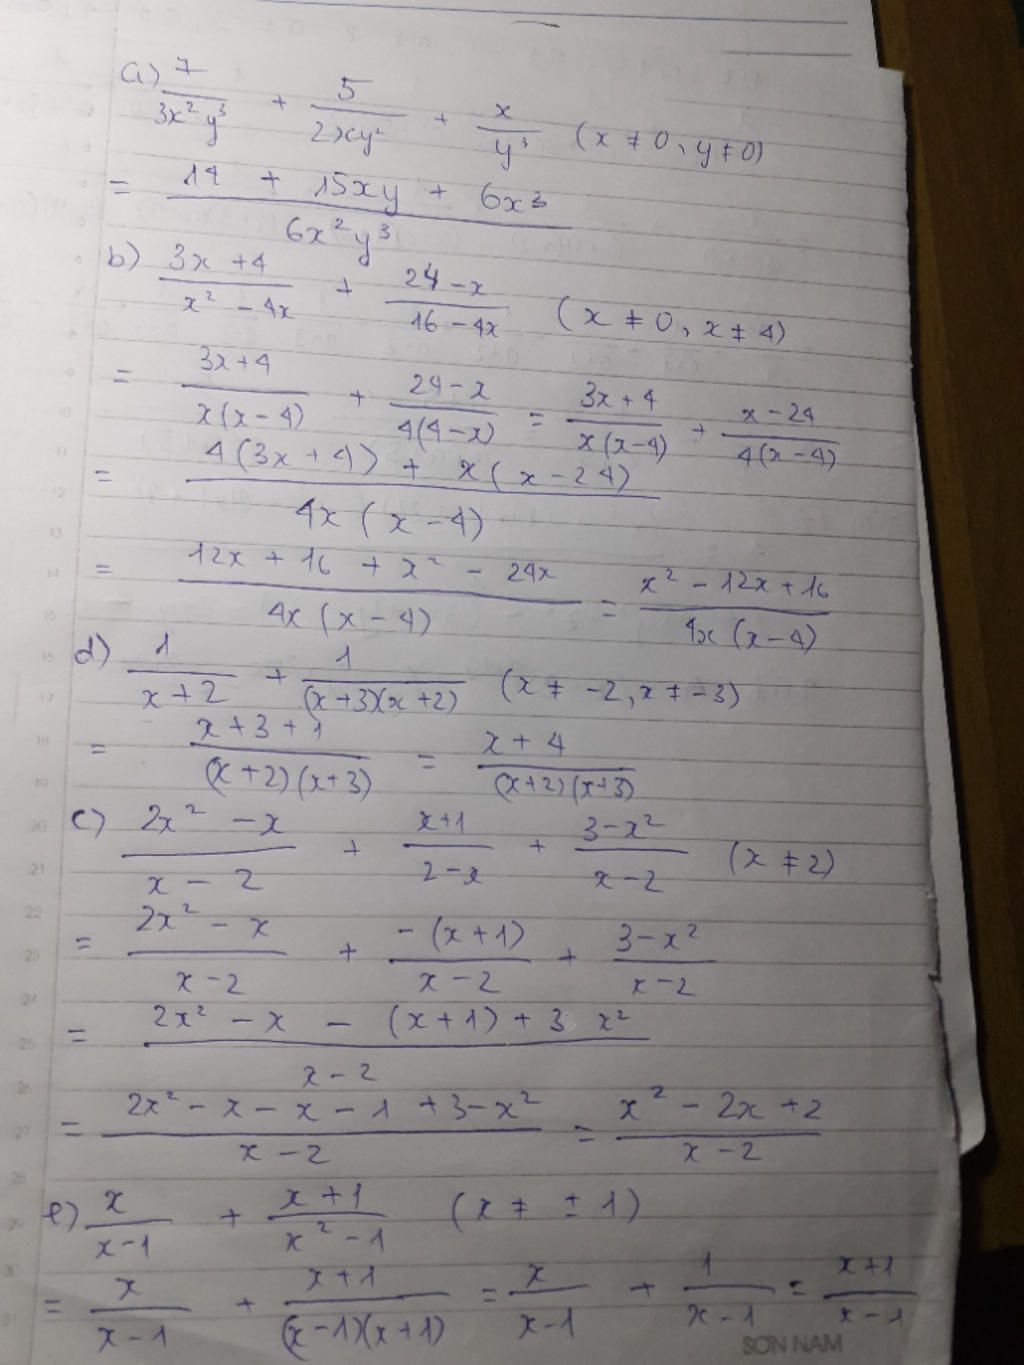 a) 7/(3x²y³) + 5/(2xy²) + x/y³ (x ≠ 0, y ≠ 0)
= (14 + 15xy + 6x³)/(6x²y³)
b) (3x + 4)/(x² - 4x) + (24 - x)/(16 - 4x) (x ≠ 0, x ≠ 4)
= (3x + 4)/(x(x - 4)) + (24 - x)/(4(4 - x)) = (3x + 4)/(x(x - 4)) + (x - 24)/(4(x - 4))
= (4(3x + 4) + x(x - 24))/(4x(x - 4))
= (12x + 16 + x² - 24x)/(4x(x - 4)) = (x² - 12x + 16)/(4x(x - 4))
d) 1/(x + 2) + 1/((x + 3)(x + 2)) (x ≠ -2, x ≠ -3)
= (x + 3 + 1)/((x + 2)(x + 3)) = (x + 4)/((x + 2)(x + 3))
c) (2x² - x)/(x - 2) + (x + 1)/(2 - x) + (3 - x²)/(x - 2) (x ≠ 2)
= (2x² - x)/(x - 2) + (-(x + 1))/(x - 2) + (3 - x²)/(x - 2)
= (2x² - x - (x + 1) + 3 x²)/(x - 2)
= (2x² - x - x - 1 + 3 - x²)/(x - 2) = (x² - 2x + 2)/(x - 2)
e) x/(x - 1) + (x + 1)/(x² - 1) (x ≠ ± 1)
= x/(x - 1) + (x + 1)/((x - 1)(x + 1)) = x/(x - 1) + 1/(x - 1) = (x + 1)/(x - 1)
SON NAM